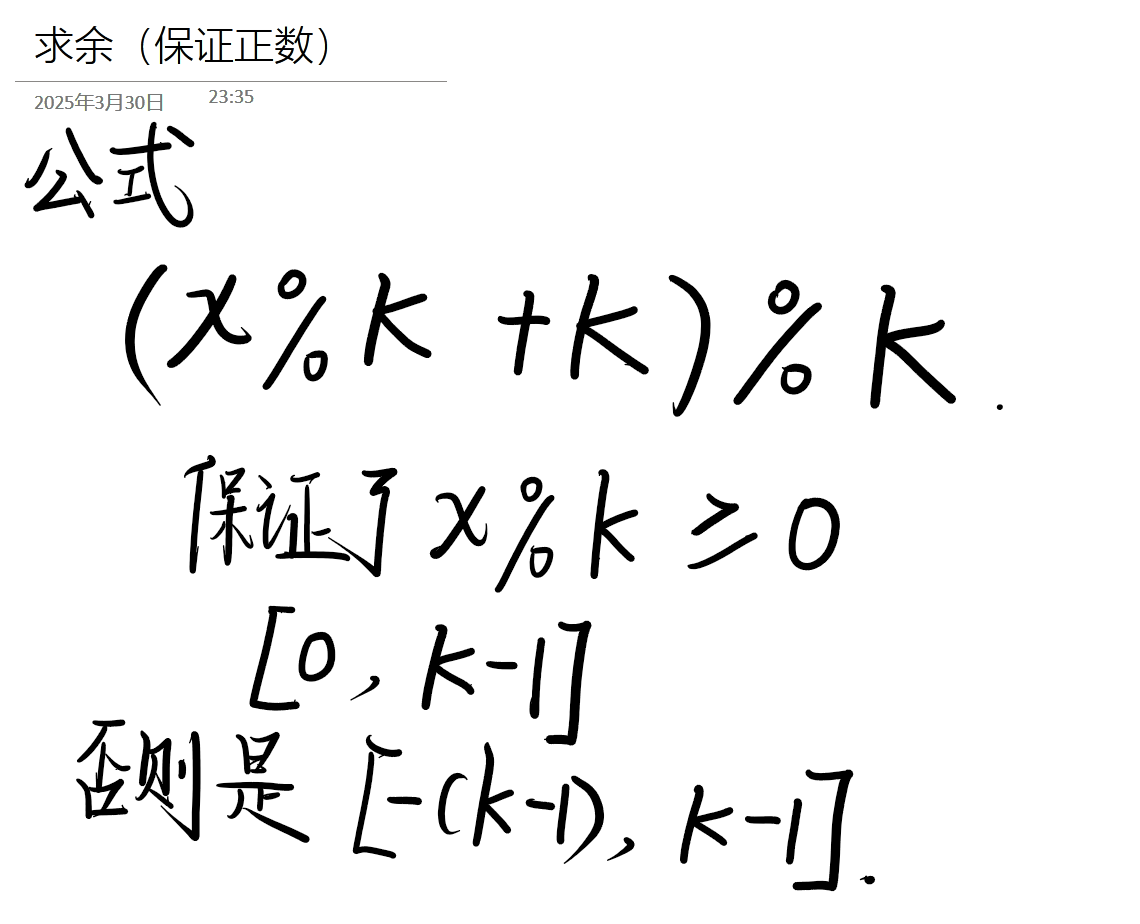 求余（保证正数）
2025年3月30日 23:35
公式
(x%k +k)%k.
保证了x%k≥0
[0, k-1]
否则是[-(k-1), k-1].